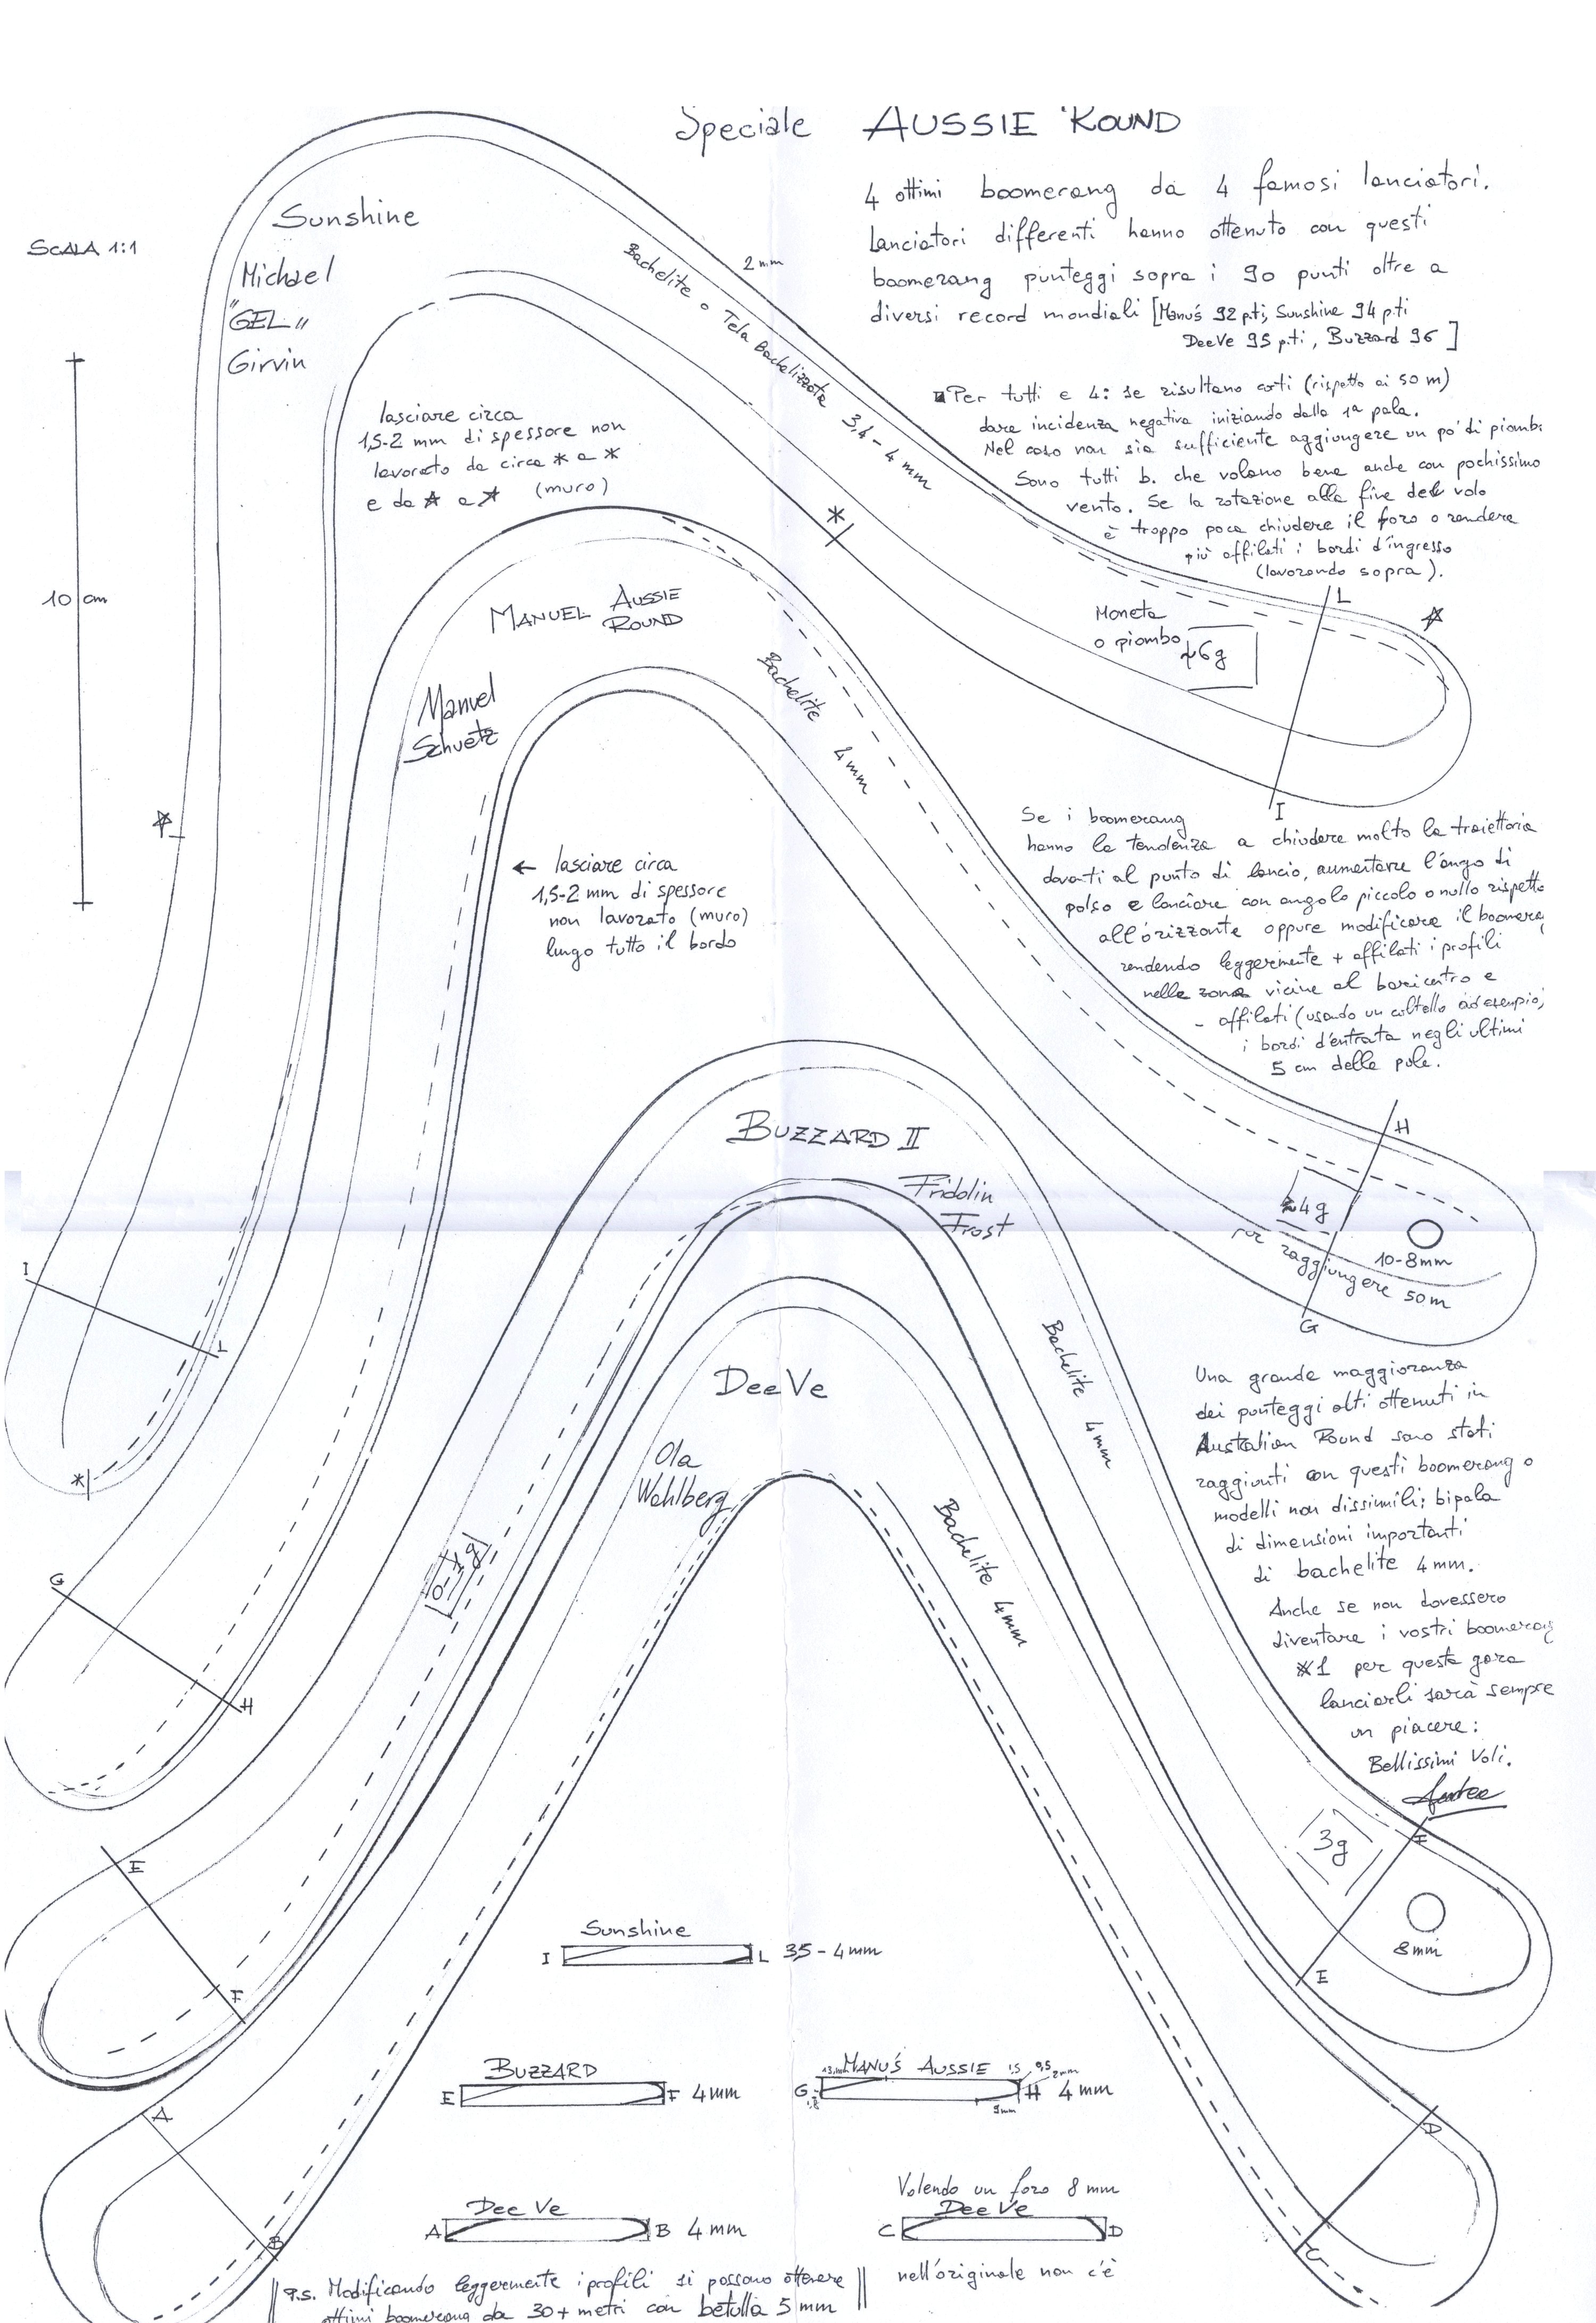 Speciale AUSSIE ROUND
4 ottimi boomerang da 4 famosi lanciatori.
Lanciatori differenti hanno ottenuto con questi
boomerang punteggi sopra i 90 punti oltre a
diversi record mondiali [Manu's 92 p.ti, Sunshine 94 p.ti
DeeVe 95 p.ti, Buzzard 96 ]
Per tutti e 4: se risultano corti (rispetto ai 50 m)
dare incidenza negativa iniziando dalla 1ª pala.
Nel caso non sia sufficiente aggiungere un po' di piomb
Sono tutti b. che volano bene anche con pochissimo
vento. Se la rotazione alla fine del volo
è troppo poca chiudere il foro o rendere
più affilati i bordi d'ingresso
(lavorando sopra).
Sunshine
Michael
"GEL"
Girvin
SCALA 1:1
10 cm
2 mm
Bachelite o Tela Bachelizzata 3,4 - 4 mm
lasciare circa
1,5-2 mm di spessore non
lavorato da circa * a *
e da ☆ a ☆ (muro)
*
☆
Moneta
o piombo
~6g
L
I
☆
I
L
*
MANUEL AUSSIE
ROUND
Manuel
Schuetz
Bachelite 4 mm
← lasciare circa
1,5-2 mm di spessore
non lavorato (muro)
lungo tutto il bordo
Se i boomerang
hanno la tendenza a chiudere molto la traiettoria
davanti al punto di lancio, aumentare l'ango di
polso e lanciare con angolo piccolo o nullo rispetto
all'orizzonte oppure modificare il boomera
rendendo leggermente + affilati i profili
nelle zona vicine al baricentro e
- affilati (usando un coltello ad esempio)
i bordi d'entrata negli ultimi
5 cm delle pale.
H
≈4g
10-8mm
per raggiungere 50 m
G
G
H
BUZZARD II
Fridolin
Frost
Bachelite 4 mm
0-1g
3g
8mm
E
F
F
E
DeeVe
Ola
Wahlberg
Bachelite 4 mm
A
B
D
C
Una grande maggioranza
dei punteggi alti ottenuti in
Australian Round sono stati
raggiunti con questi boomerang o
modelli non dissimili: bipala
di dimensioni importanti
di bachelite 4 mm.
Anche se non dovessero
diventare i vostri boomerang
#1 per questa gara
lanciarli sarà sempre
un piacere:
Bellissimi Voli.
Sunshine
I L 3,5 - 4 mm
BUZZARD
E F 4 mm
MANU'S AUSSIE 1,5 0,5 2mm
G H 4 mm
9mm
Dee Ve
A B 4 mm
Volendo un foro 8 mm
Dee Ve
C D
nell'originale non c'è
P.S. Modificando leggermente i profili si possono ottenere
ottimi boomerang da 30+ metri con betulla 5 mm